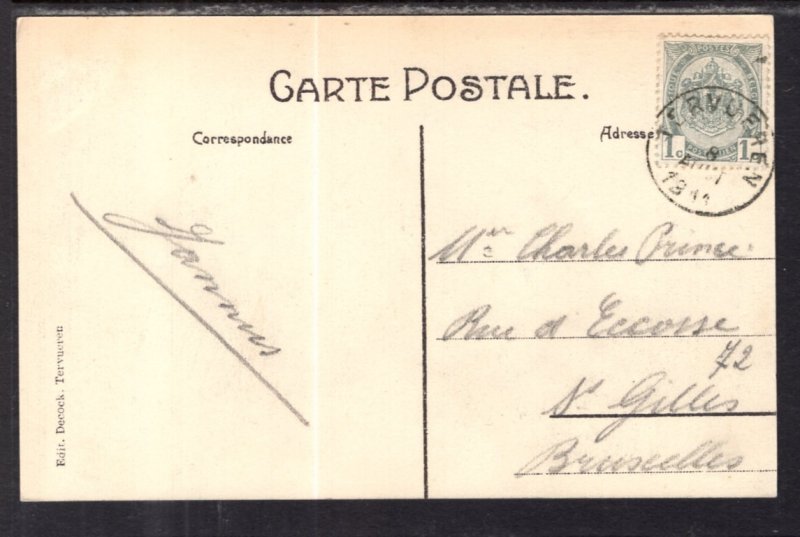 CARTE POSTALE.
Correspondance
Adresse
POSTES
1 C 1 C
TERVUEREN
8
1911
Jannus
Mr Charles Prince
Rue d'Eccosse
72
St Gilles
Bruxelles
Edit. Decock. Tervueren